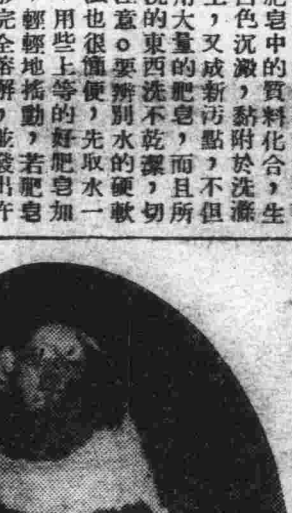 肥皂中的質料化合，生
色沉澱，黏附於洗滌
，又成新汚點，不但
用大量的肥皂，而且所
洗的東西洗不乾潔，切
注意。要辨別水的硬軟
法也很簡便，先取水一
用些上等的好肥皂加
，輕輕地搖動，若肥皂
完全溶解，並發出許